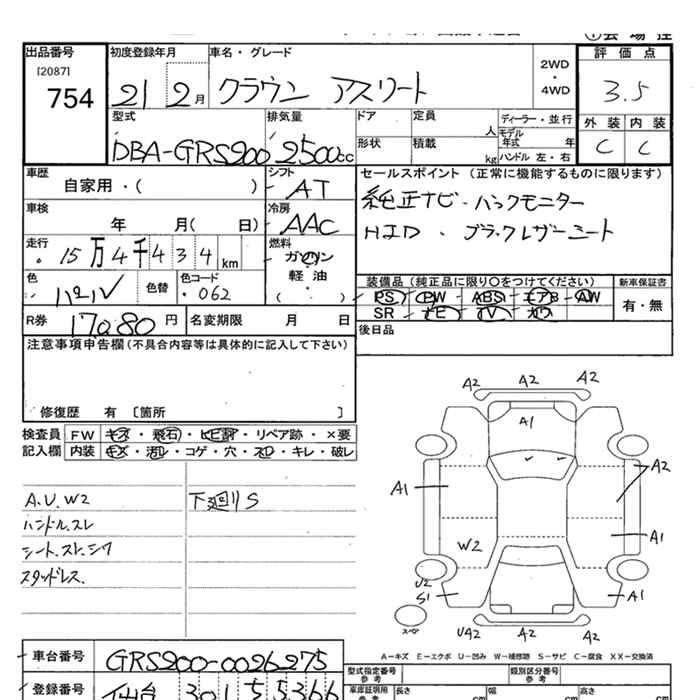 出品番号 初度登録年月 車名・グレード 2WD・4WD 評価点
[2087]
754 21 2月 クラウン アスリート 3.5
型式 排気量 ドア 定員 人 ディーラー・並行 外装 内装
DBA-GRS200 2500cc 形状 積載 kg モデル年式 年 ハンドル 左・右 C C
車歴 シフト セールスポイント(正常に機能するものに限ります)
自家用・( ) AT
純正ナビ・バックモニター
車検 冷房
年 月( 日) AAC HID・ブラックレザーシート
走行 燃料
15万4千434km ガソリン
軽油
( ・ )
色 色替 色コード 装備品(純正品に限り○をつけてください) 新車保証書
パール 062 PS PW ABS エアB AW 有・無
R券 17080円 名変期限 月 日 SR ナビ TV カワ
注意事項申告欄(不具合内容等は具体的に記入して下さい) 後日品
修復歴 有 〔箇所 〕
検査員 FW キズ・飛石・ヒビ割・リペア跡・×要
記入欄 内装 キズ・汚れ・コゲ・穴・スレ・キレ・破レ
A2 A2 A2
A1
A.U.W2 下廻りS
ハンドル.スレ
シート.スレ.シワ
スタッドレス.
A1 A2
A1
W2
U2
S1 A1
スペア
UA2 A2 A2
A−キズ E−エクボ U−凹み W−補修跡 S−サビ C−腐食 XX−交換済
車台番号 GRS200-0026275
型式指定番号 参考 類別区分番号 参考
登録番号 仙台 301 55366
車庫証明用 長さ cm 幅 cm 高さ cm